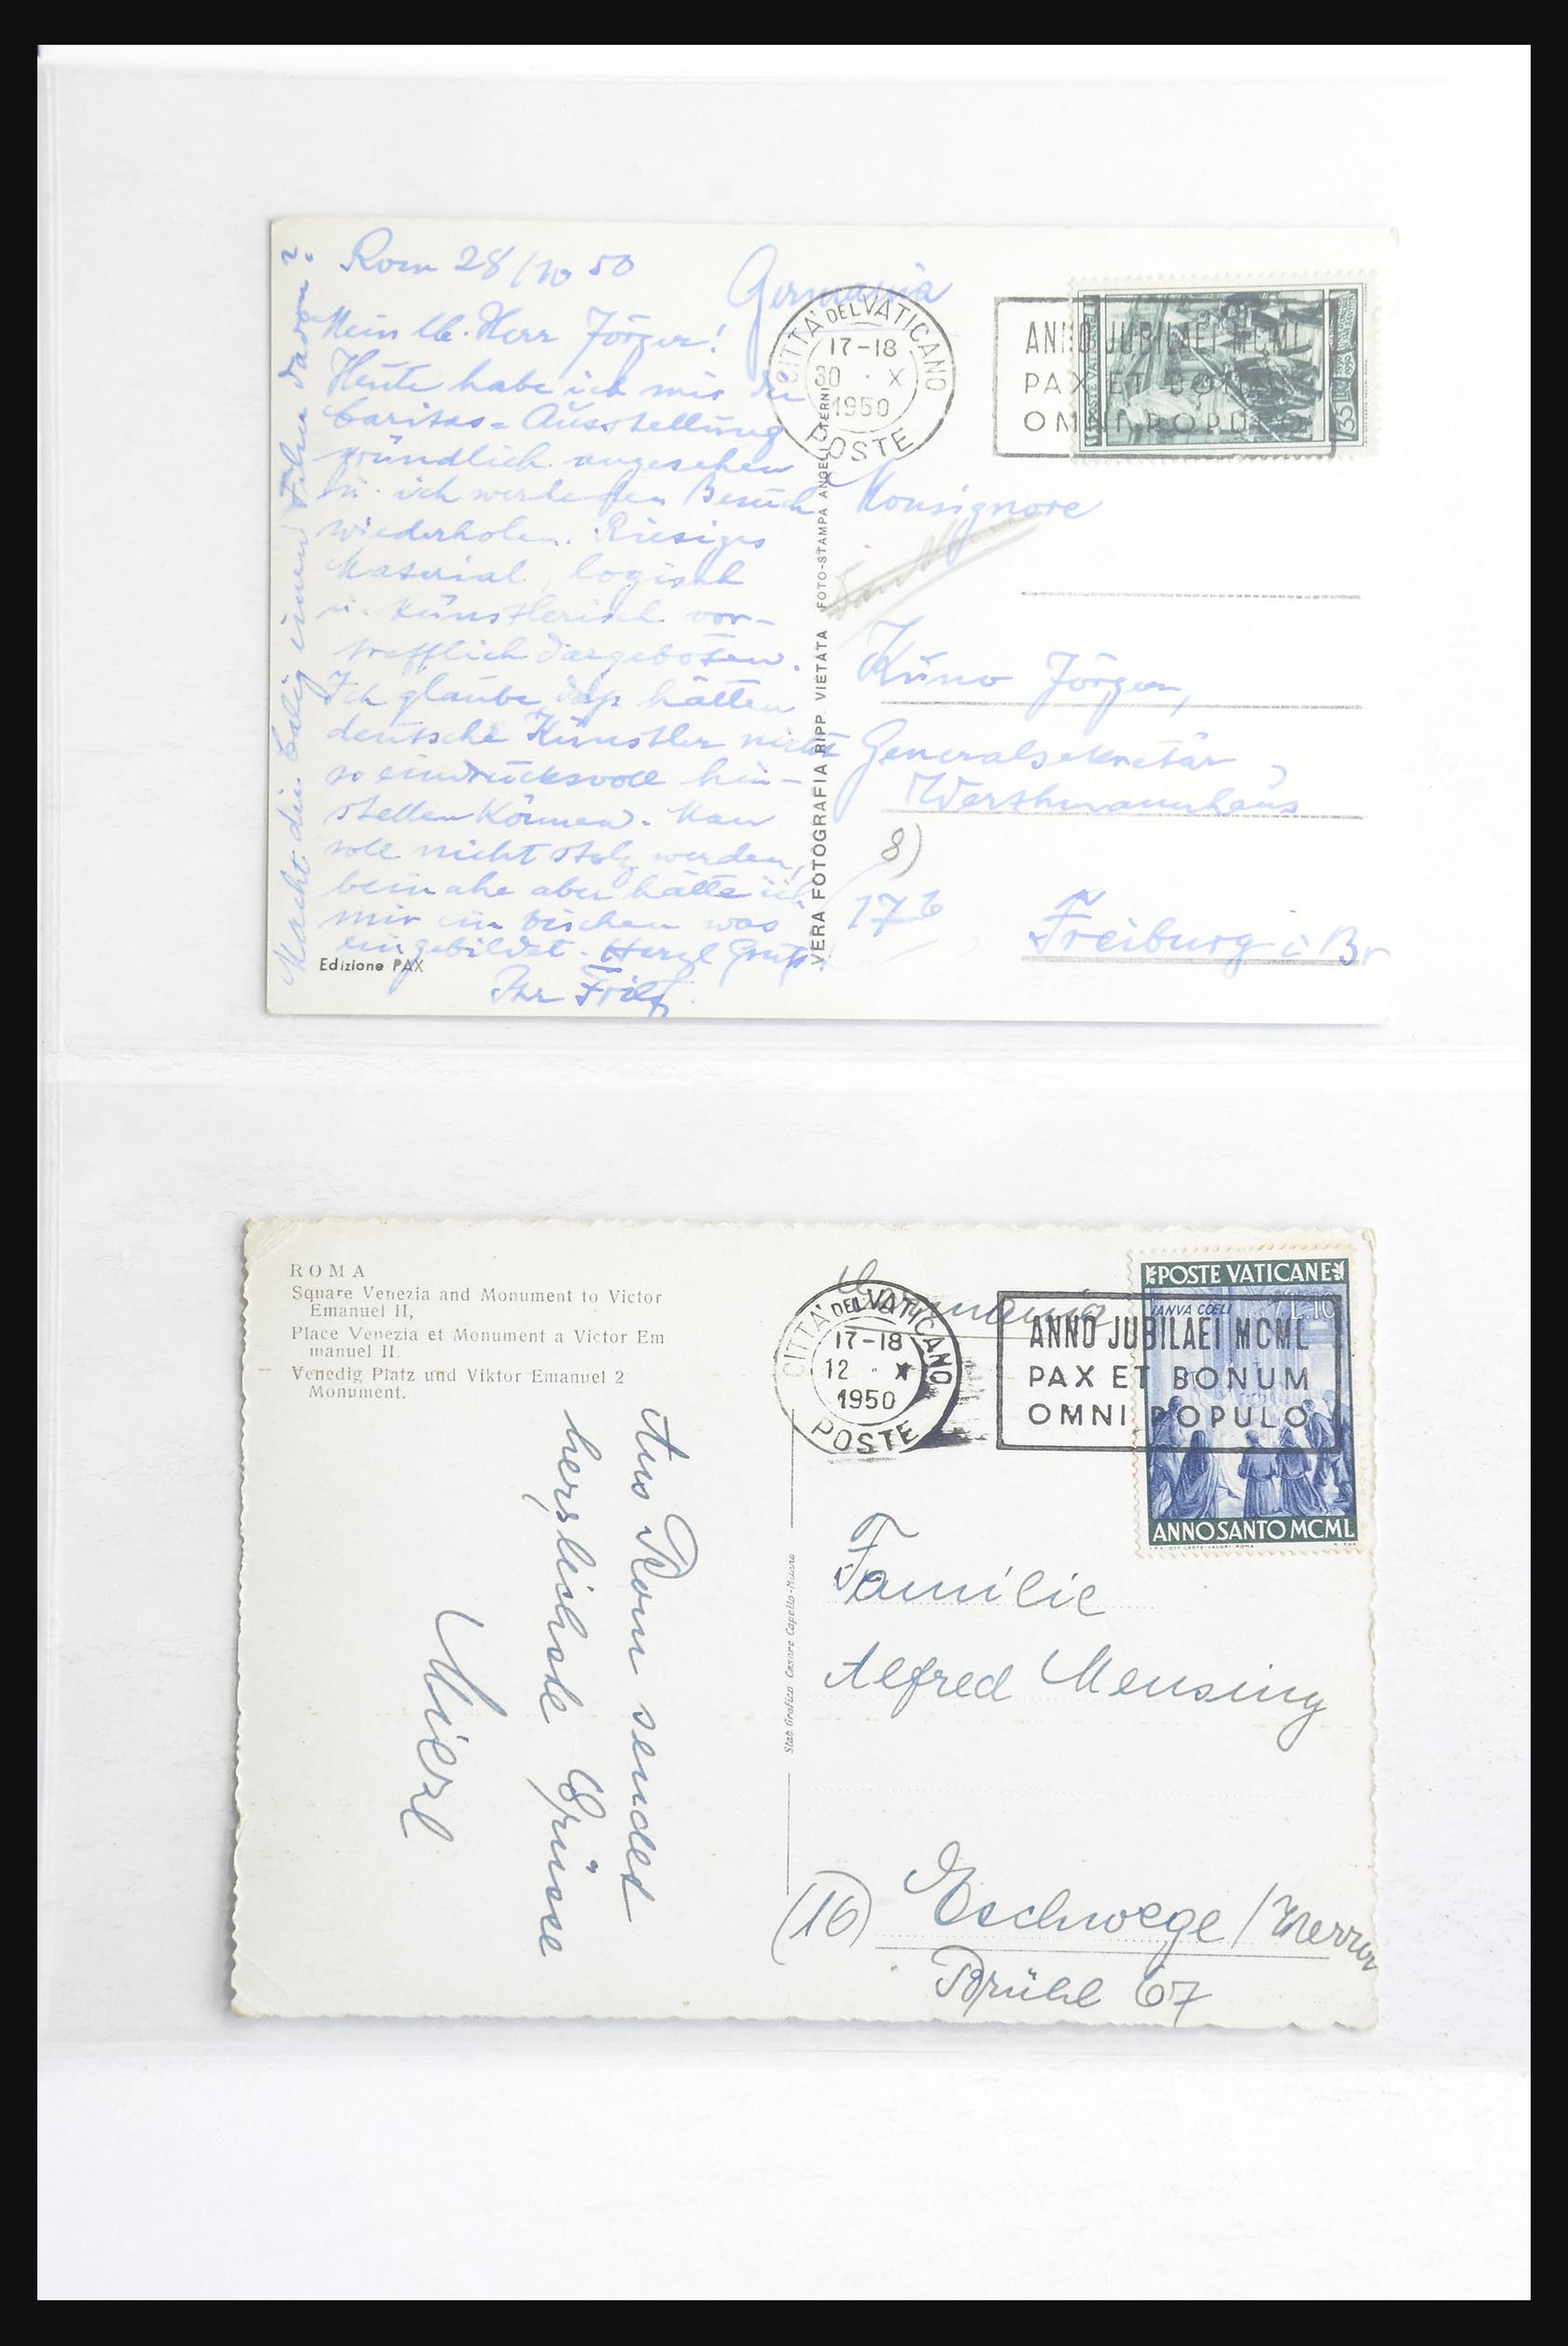 Rom 28/10 50
Germania
Mein lb. Herr Jörger!
Heute habe ich mir die
Caritas-Ausstellung
gründlich angesehen
u. ich werde den Besuch
wiederholen. Riesiges
Material, logisch
u. künstlerisch vor-
trefflich dargeboten.
Ich glaube, das hätten
deutsche Künstler nicht
so eindrucksvoll hin-
stellen können. Man
soll nicht stolz werden,
beinahe aber hätte ich
mir ein bischen was
eingebildet. Herzl Gruß!
Ihr
Macht die
davon?
Edizione PAX
VERA FOTOGRAFIA RIPP. VIETATA FOTO-STAMPA ANGELI TERNI
CITTA' DEL VATICANO
17-18
30 · X
1950
POSTE
ANNO JUBILAEI MCML
PAX ET BONUM
OMNI POPULO
35
Monsignore
Kuno Jörger,
Generalsekretär,
Werthmannhaus
8)
17b
Freiburg i Br
ROMA
Square Venezia and Monument to Victor
Emanuel II,
Place Venezia et Monument a Victor Em
manuel II.
Venedig Platz und Viktor Emanuel 2
Monument.
Aus Rom sendet
herzlichste Grüsse
Germania
CITTA' DEL VATICANO
17-18
12 ·
1950
POSTE
ANNO JUBILAEI MCML
PAX ET BONUM
OMNI POPULO
POSTE VATICANE
IANVA COELI
L.10
ANNO SANTO MCML
Stab Grafico Cesare Capello-Milano
Familie
Alfred Mensing
(16) Eschwege/Werra
Brühl 67